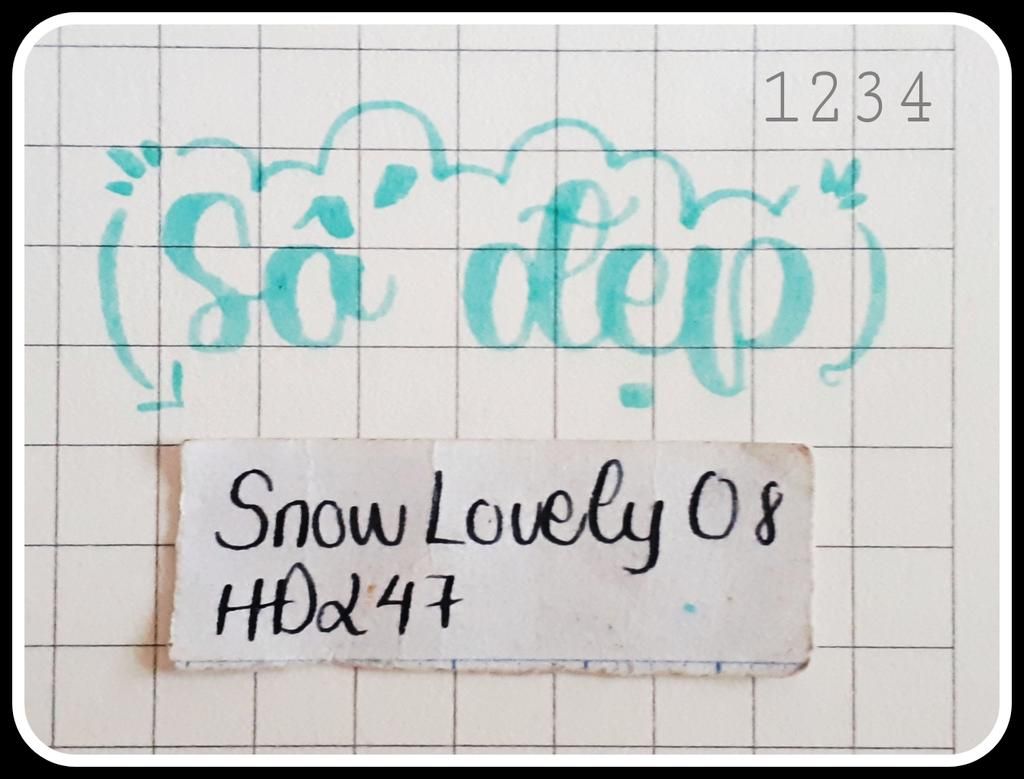 1234
(Số đẹp)
Snow Lovely 08
HD247